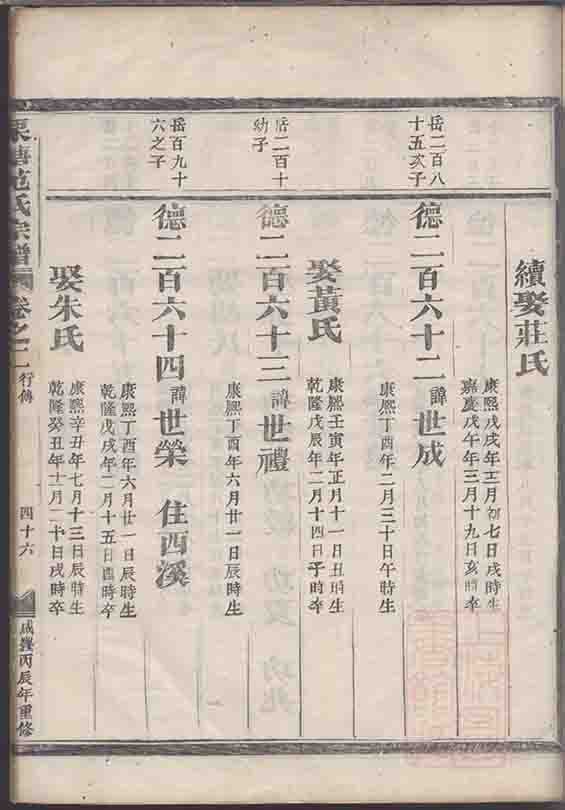 續娶莊氏
康熙戊戌年十二月初七日戌時生
嘉慶戊午年三月十九日亥時卒
岳二百八
十五次子
德二百六十二 諱世成
康熙丁酉年二月三十日午時生
娶黃氏
康熙壬寅年正月十一日丑時生
乾隆戊辰年二月十四日子時卒
岳二百十
幼子
德二百六十三 諱世禮
康熙丁酉年六月廿一日辰時生
岳百九十
六之子
德二百六十四 諱世榮 住西溪
康熙丁酉年六月廿一日辰時生
乾隆戊戌年二月十五日酉時卒
娶朱氏
康熙辛丑年七月十三日辰時生
乾隆癸丑年十一月二十日戌時卒
范氏宗譜 卷之二 行傳 四十六 咸豐丙辰年重修